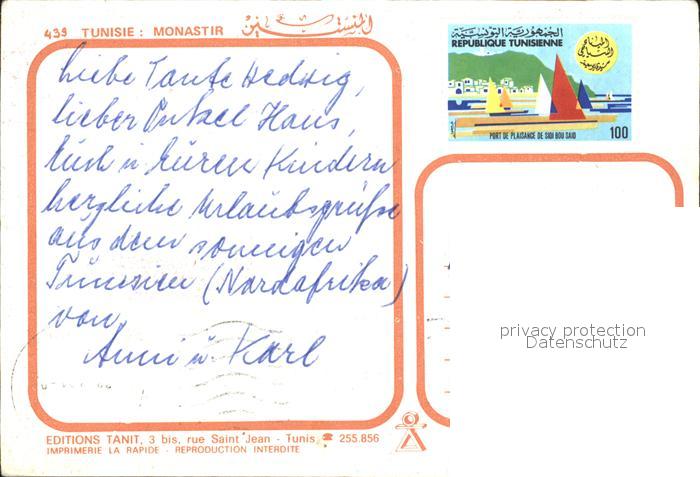 439 TUNISIE : MONASTIR المنستير
الجمهورية التونسية
REPUBLIQUE TUNISIENNE
PORT DE PLAISANCE DE SIDI BOU SAID
100
Liebe Tante Hedwig,
lieber Onkel Hans,
Euch u Euren Kindern
herzliche Urlaubsgrüße
aus dem sonnigen
Tunesien (Nordafrika)
von
Anni u. Karl
privacy protection
Datenschutz
EDITIONS TANIT, 3 bis, rue Saint Jean - Tunis ☎ 255.856
IMPRIMERIE LA RAPIDE - REPRODUCTION INTERDITE